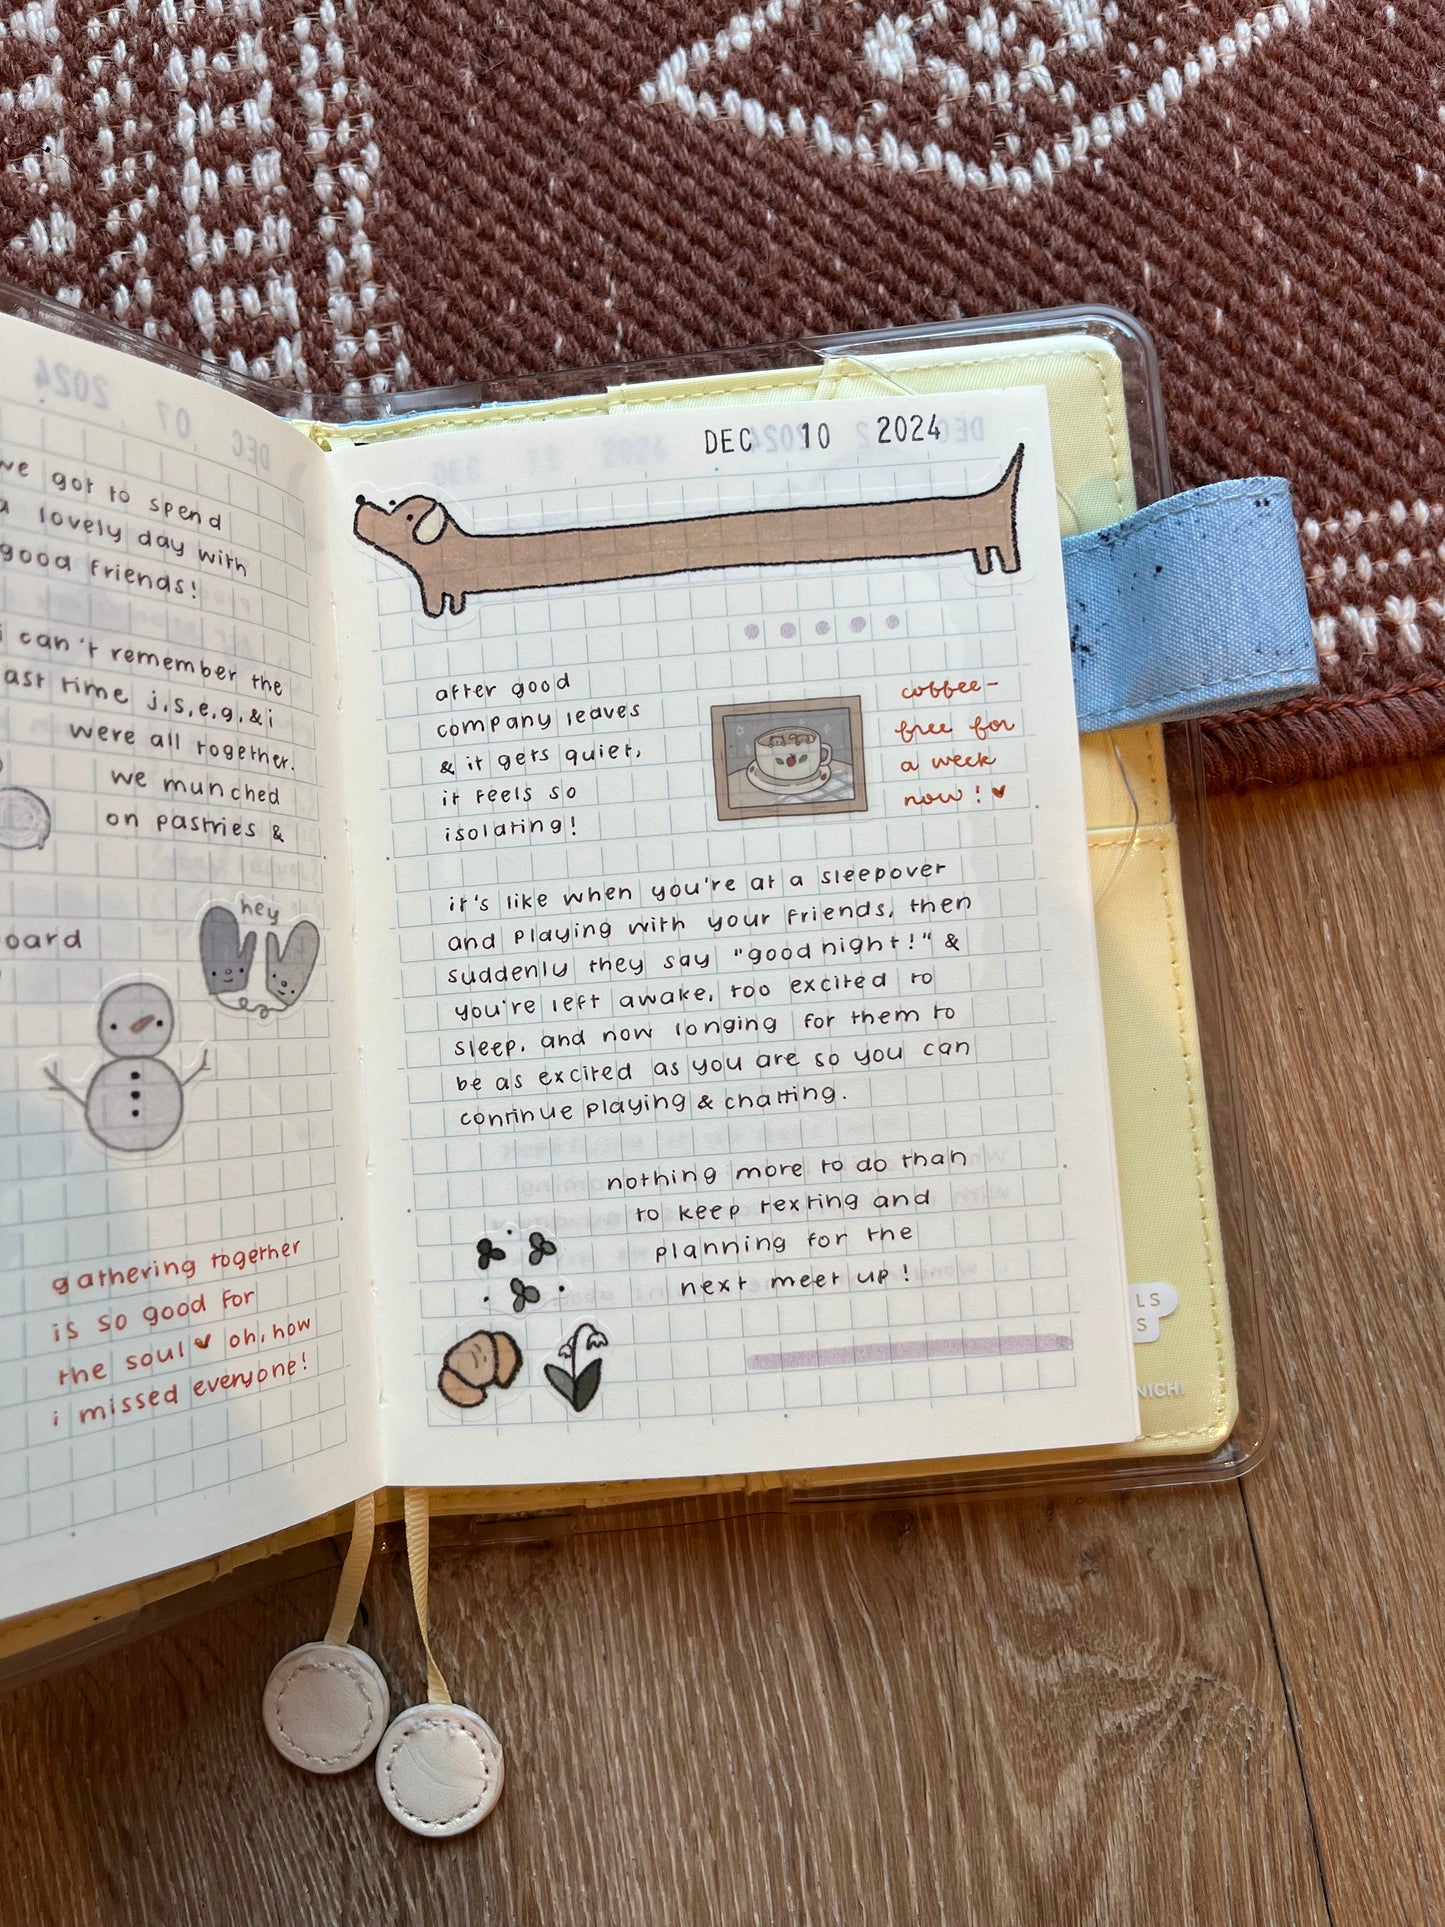 we got to spend
a lovely day with
good friends!
i can't remember the
last time j, s, e, g, & i
were all together.
we munched
on pastries &
oard
hey
gathering together
is so good for
the soul ♥ oh, how
i missed everyone!
DEC 10 2024
after good
company leaves
& it gets quiet,
it feels so
isolating!
coffee-
free for
a week
now! ♥
it's like when you're at a sleepover
and playing with your friends, then
suddenly they say "good night!" &
you're left awake, too excited to
sleep, and now longing for them to
be as excited as you are so you can
continue playing & chatting.
nothing more to do than
to keep texting and
planning for the
next meet up!
LS
S
NICHI